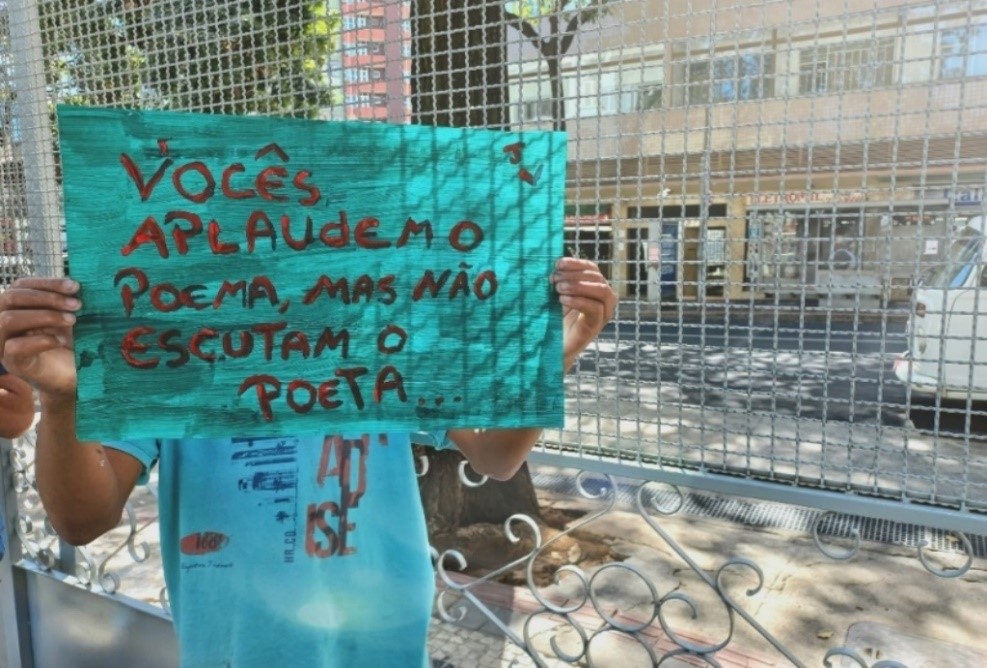 VOCÊS
APLAUDEM O
POEMA, MAS NÃO
ESCUTAM O
POETA...